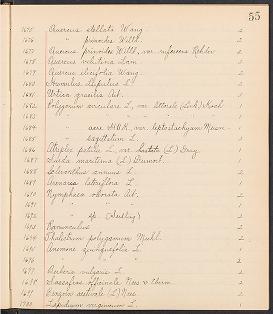 55
1675 Quercus stellata Wang. 2
1676 " prinoides Willd. 2
1677 Quercus prinoides Willd., var. rufescens Rehder 2
1678 Quercus velutina Lam. 2
1679 Quercus ilicifolia Wang. 2
1680 Humulus Lupulus L. 2
1681 Urtica gracilis Ait. 2
1682 Polygonum aviculare L., var. littorale (Link) Koch 1
1683 " " " " 1
1684 " acre HBK., var. leptostachyum Meisn. 1
1685 " sagittatum L. 1
1686 Atriplex patula L., var. hastata (L.) Gray 1
1687 Suaeda maritima (L.) Dumort. 2
1688 Scleranthus annuus L. 2
1689 Arenaria lateriflora L. 1
1690 Nymphaea odorata Ait. 2
1691 " " " 2
1692 " sp. (Seedling) 2
1693 Ranunculus 2
1694 Thalictrum polygamum Muhl. 2
1695 Anemone quinquefolia L. 2
1696 " " " 2
1697 Berberis vulgaris L. 2
1698 Sassafras officinale Nees & Eberm. 2
1699 Benzoin aestivale (L.) Nees 2
1700 Lepidium virginicum L. 2